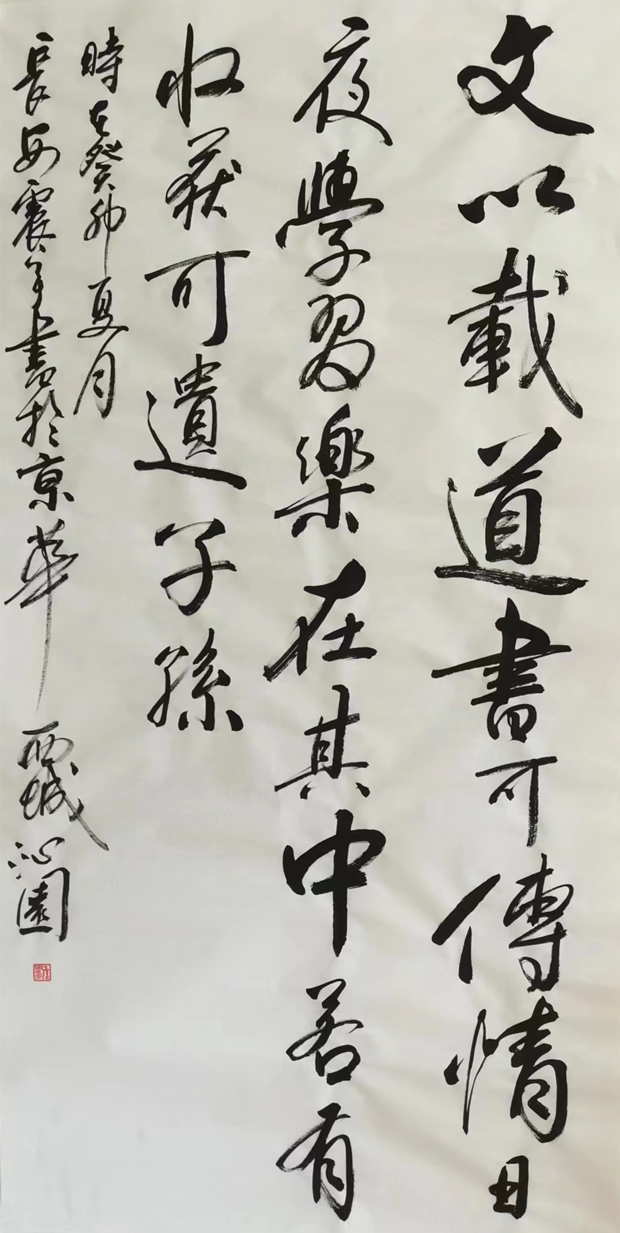 文以載道書可傳情日
夜學習樂在其中若有
收获可遺子孫
時在癸卯夏月
長安震年書於京華西城沁園